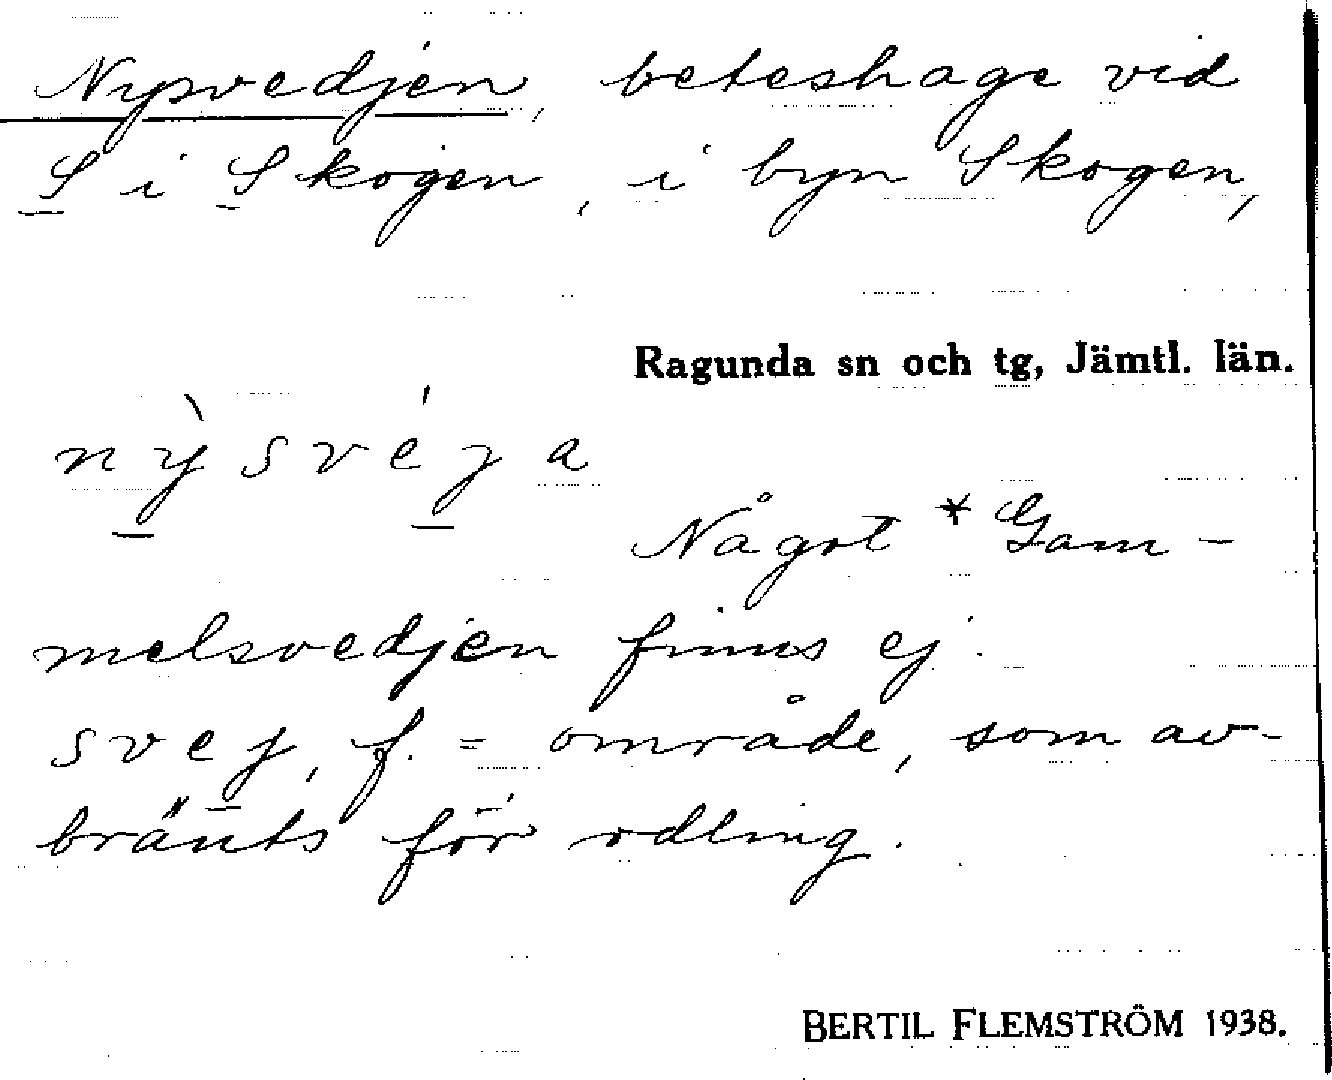 Nysvedjen, beteshage vid
S i Skogen, i byn Skogen,
Ragunda sn och tg, Jämtl. län.
nỳsvéja
Något * Gam-
melsvedjen finns ej.
svej, f. = område, som av-
bränts för odling.
BERTIL FLEMSTRÖM 1938.